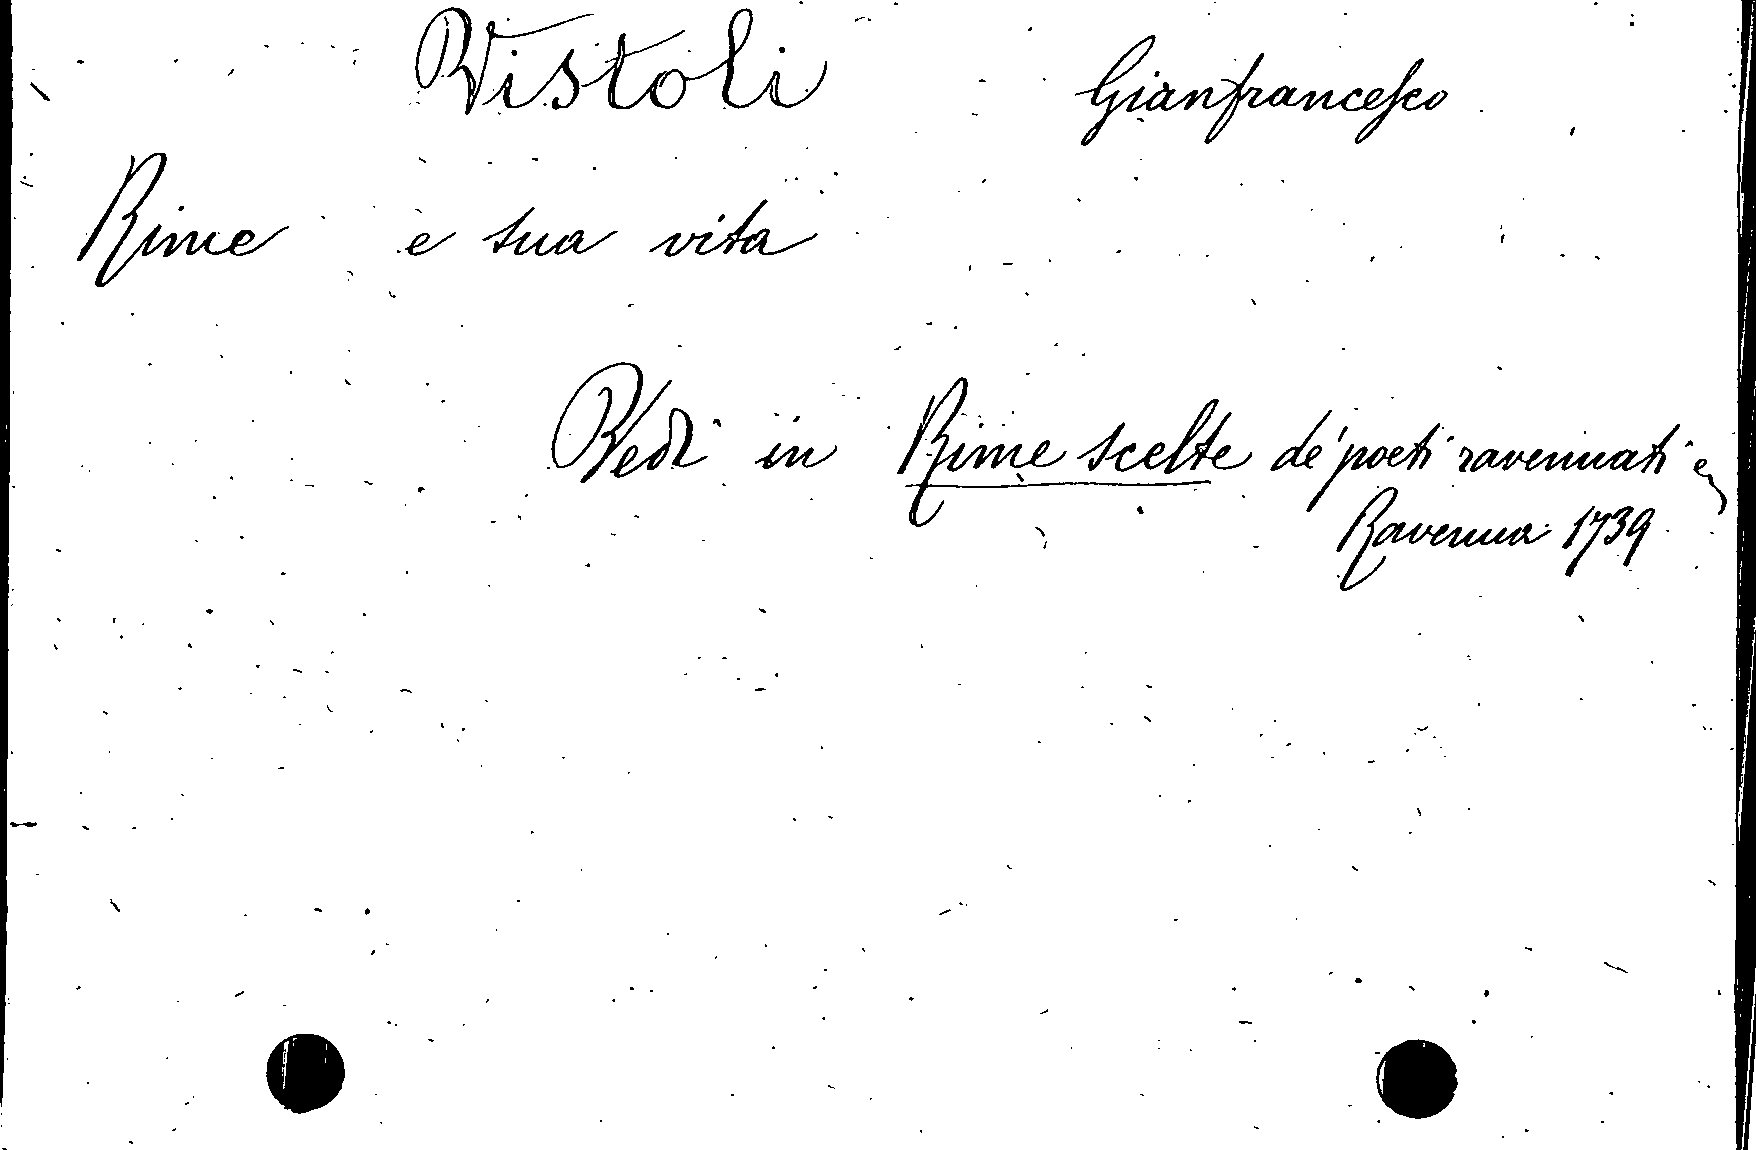 Vistoli Gianfrancesco
Rime e sua vita
Vedi in Rime scelte de' poeti ravennati
Ravenna 1739